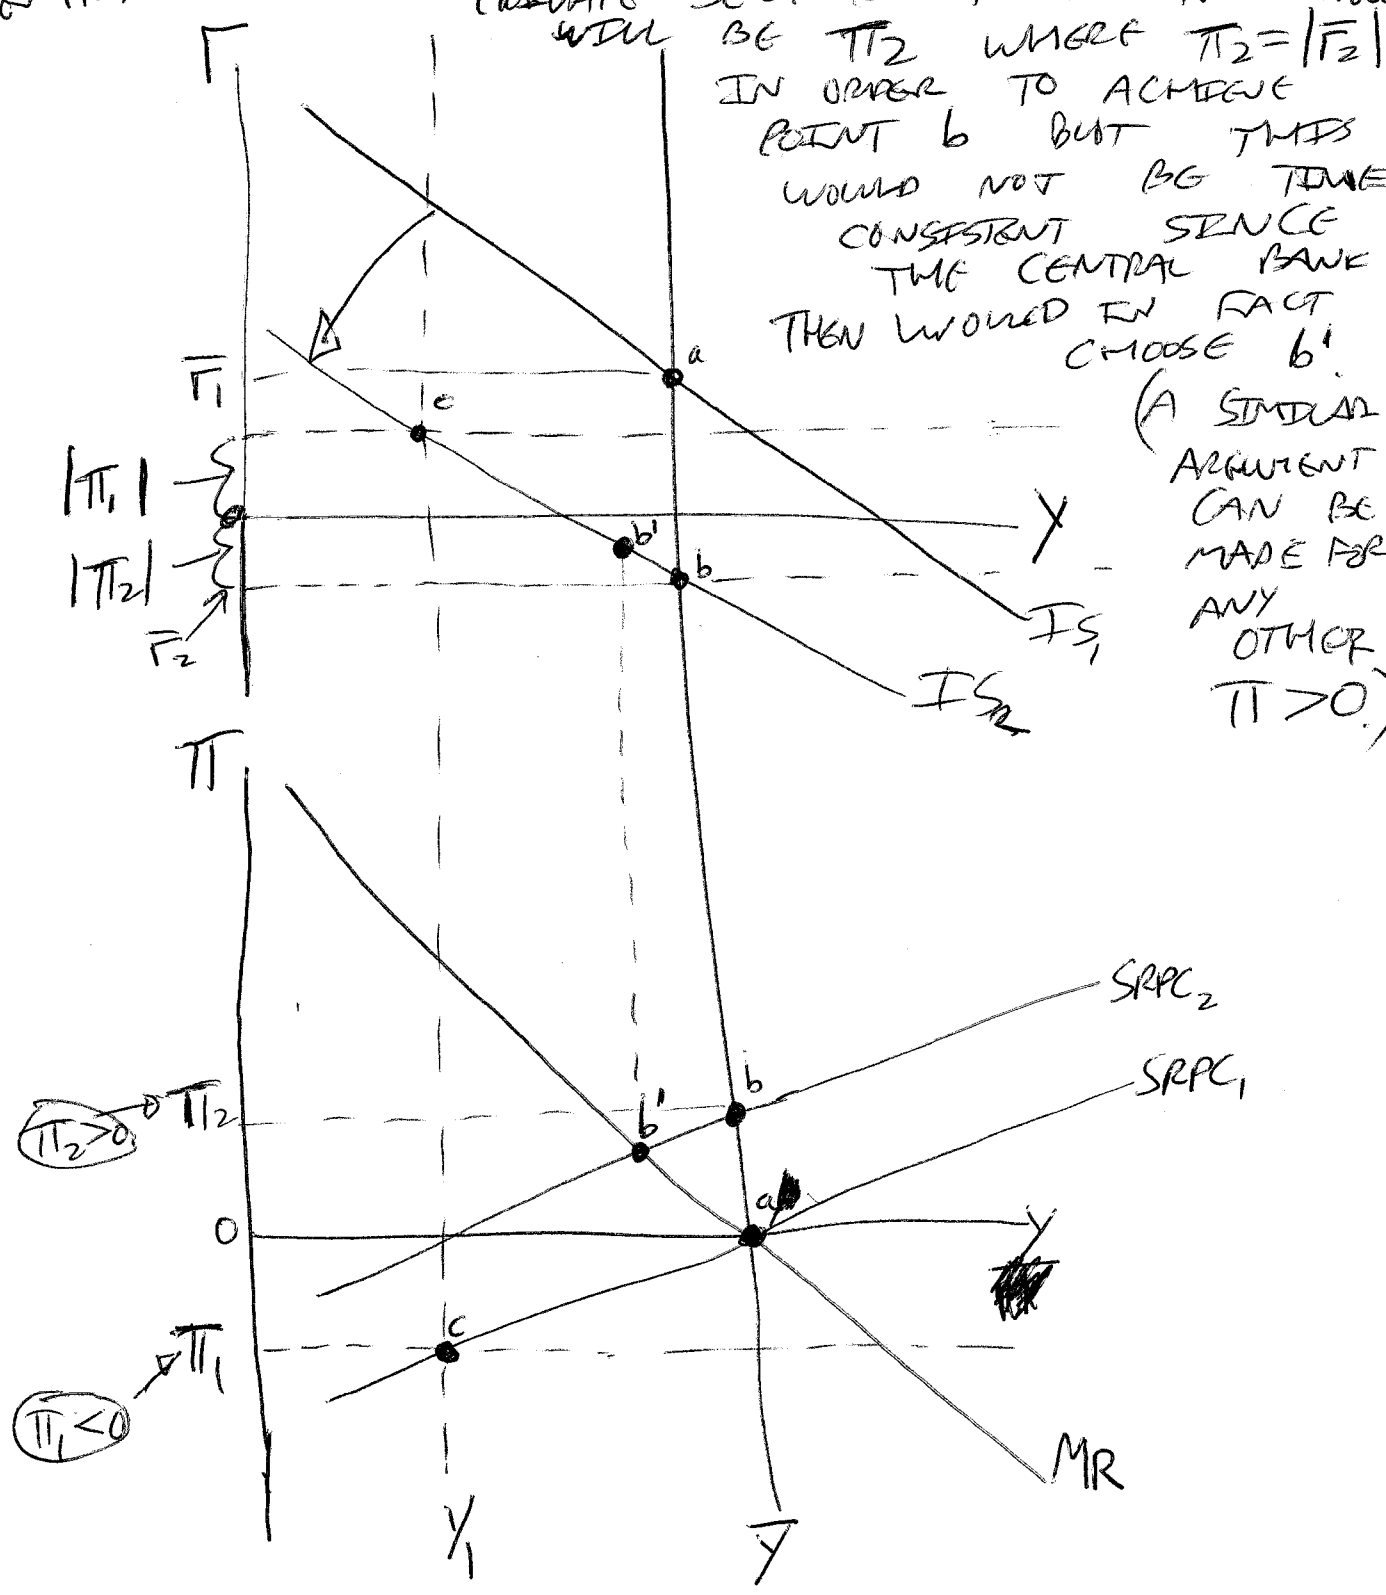 WILL BE π2 WHERE π2=|r̄2|
IN ORDER TO ACHIEVE
POINT b BUT THIS
WOULD NOT BE TIME
CONSISTENT SINCE
THE CENTRAL BANK
THEN WOULD IN FACT
CHOOSE b'.
(A SIMILAR
ARGUMENT
CAN BE
MADE FOR
ANY
OTHER
π>0.)
r
r̄1
a
c
|π1|
y
b'
|π2|
b
r̄2
IS1
IS2
π
SRPC2
SRPC1
π2>0
π2
b'
b
a
0
y
c
π1
π1<0
MR
y1
ȳ